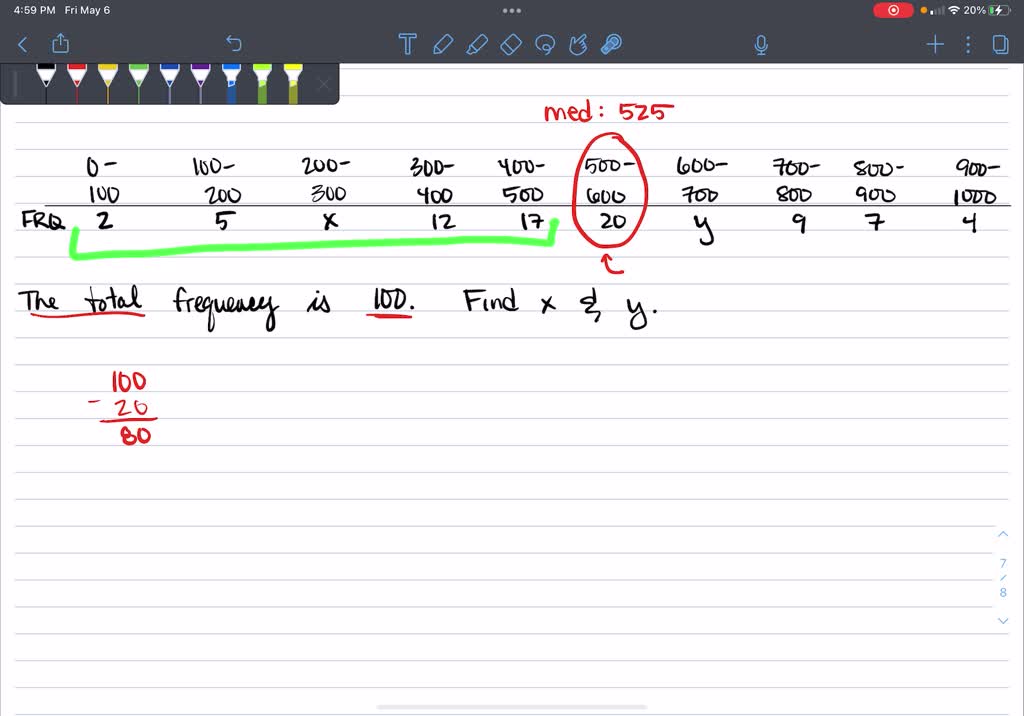 4:59 PM Fri May 6
20%
med: 525
0- 100- 200- 300- 400- 500- 600- 700- 800- 900-
100 200 300 400 500 600 700 800 900 1000
FRQ 2 5 x 12 17 20 y 9 7 4
The total frequency is 100. Find x & y.
100
- 20
80
7
/
8